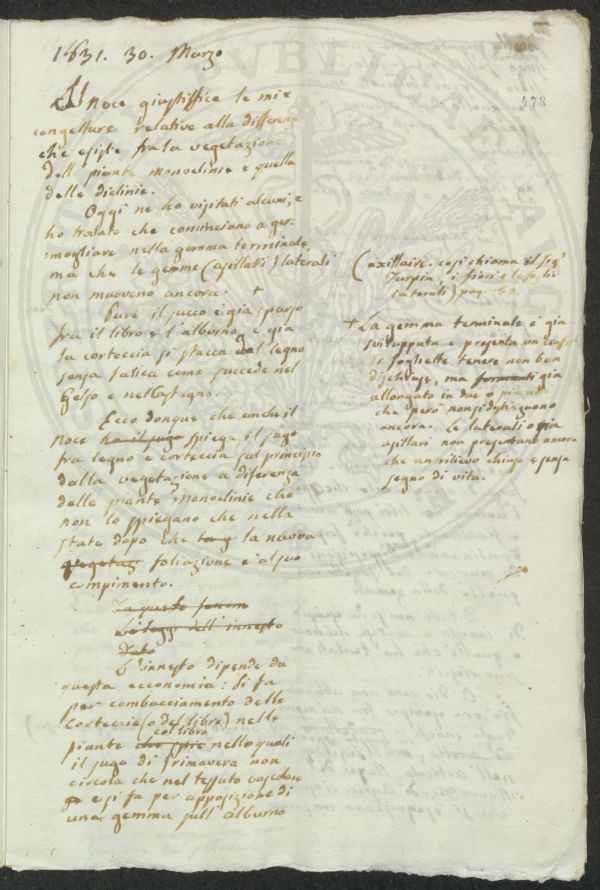 1831. 30. Marzo
478
Il Noce giustiffica le mie
congetture relative alla differenza
che esiste fra la vegetazione
dell piante monoclinie e quella
delle diclinie.
Oggi ne ho visitati alcuni, e
ho trovato che cominciano a ger-
mogliare nella gemma terminale,
ma che le gemme (asillari) laterali
non muovono ancora. +
Pure il succo è già sparso
fra il libro e l'alburno, e già
la corteccia si stacca dal legno
senza fatica come succede nel
Gelso e nel Castagno.
Ecco donque che anche il
noce ha il sugo spiega il sugo
fra legno e corteccia sul principio
della vegetazione a diferenza
delle piante Monoclinie che
non lo spiegano che nella
state dopo che la nuova
vegetaz foliazione è al suo
compimento.
In questo
Le leggi dell'innesto
Dato
L'innesto dipende da
questa economia: Si fa
per combacciamento delle
Corteccie (o del libro) nelle
col libro
piante che nelle quali
il sugo di primavera non
circola che nel tessuto vascolare
e si fa per apposizione di
una gemma sull'alburno
(axillaire. così chiama il Sigr
Turpin, i fiori e le foglie
laterali) pag. 62
+ La gemma terminale è già
sviluppata e presenta un
di fogliette tenere non ben
dischiuse, ma formanti già
allongato in due o più
che però non si distinguono
ancora. Le laterali o sia
asillari non presentano ancora
che un rilievo chiuso e senza
segno di vita.